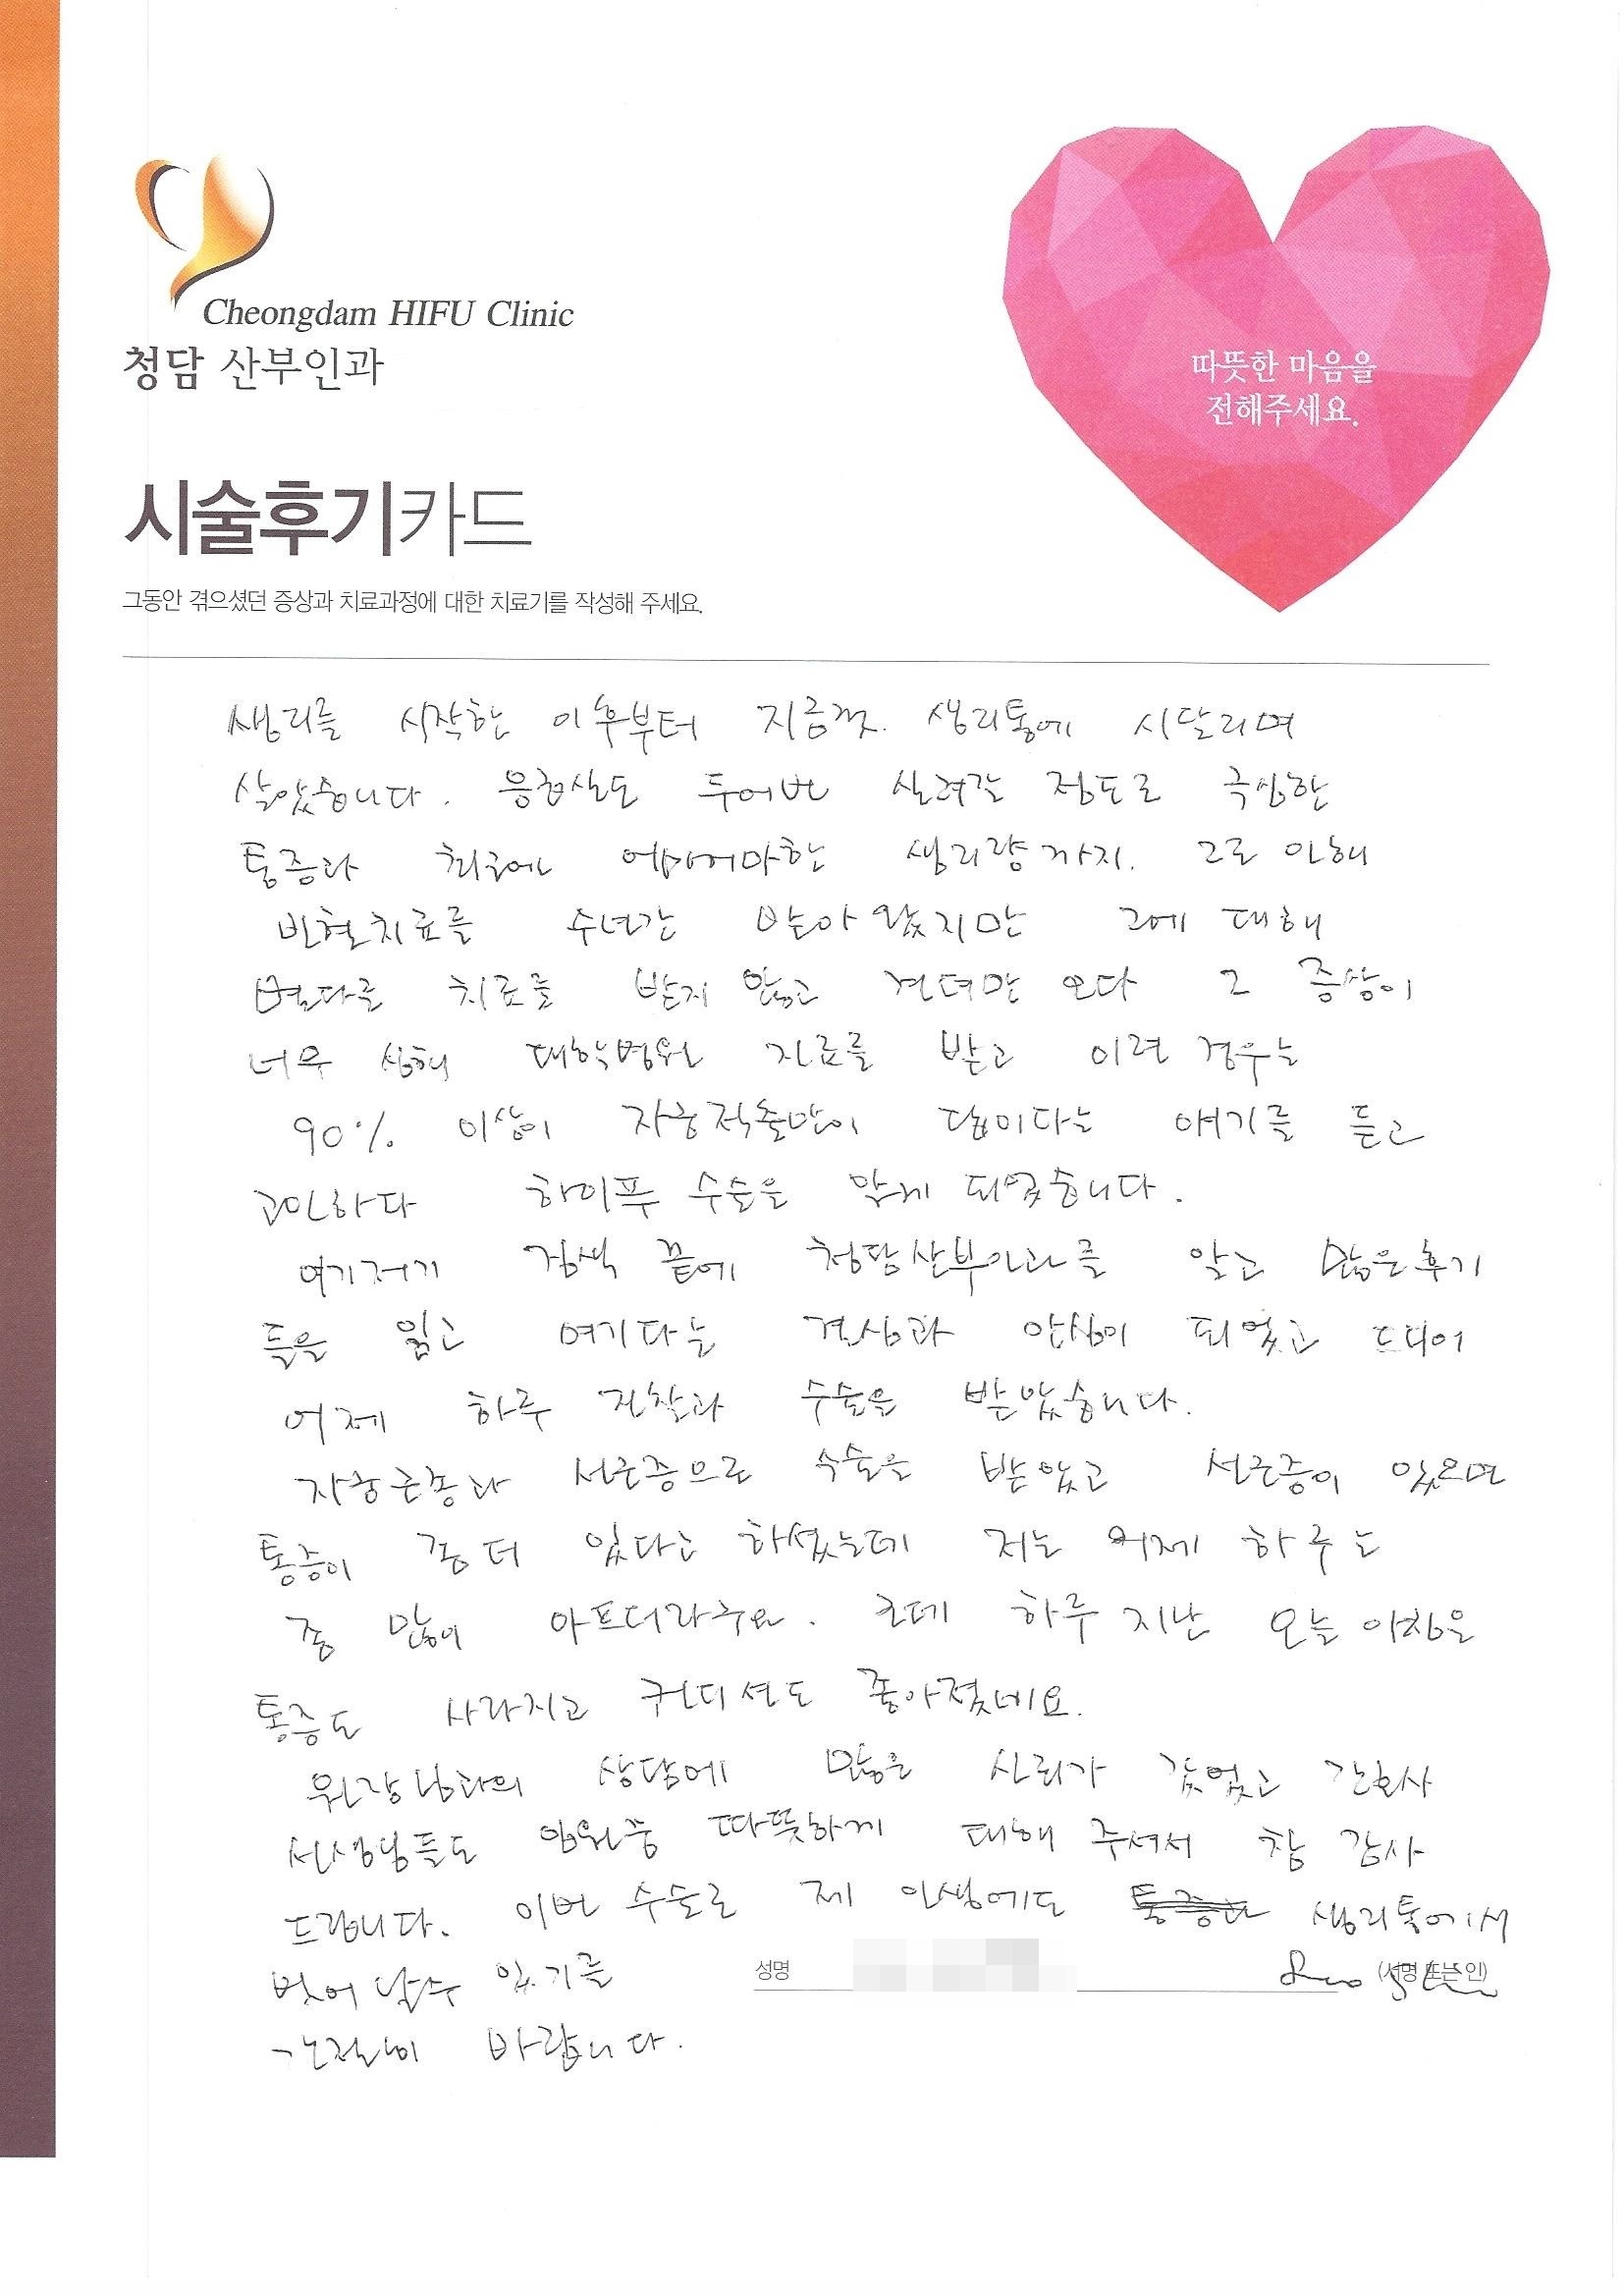 Cheongdam HIFU Clinic
청담 산부인과
따뜻한 마음을
전해주세요.
시술후기카드
그동안 겪으셨던 증상과 치료과정에 대한 치료기를 작성해 주세요.
생리를 시작한 이후부터 지금껏 생리통에 시달리며
살았습니다. 응급실도 두어번 실려갈 정도로 극심한
통증과 최근엔 어마어마한 생리량까지. 그로 인해
빈혈치료를 수년간 받아 왔지만 그에 대해
별다른 치료를 받지 않고 견뎌만 오다 그 증상이
너무 심해 대학병원 진료를 받고 이런 경우는
90% 이상이 자궁적출만이 답이다는 얘기를 듣고
고민하다 하이푸 수술을 알게 되었습니다.
여기저기 검색 끝에 청담산부인과를 알고 많은 후기
들을 읽고 여기다는 결심과 안심이 되었고 드디어
어제 하루 진찰과 수술을 받았습니다.
자궁근종과 선근증으로 수술을 받았고 선근증이 있으면
통증이 좀 더 있다고 하셨는데 저는 어제 하루는
좀 많이 아프더라구요. 근데 하루 지난 오늘 아침은
통증도 사라지고 컨디션도 좋아졌네요.
원장님과의 상담에 많은 신뢰가 갔었고 간호사
선생님들도 입원중 따뜻하게 대해 주셔서 참 감사
드립니다. 이번 수술로 제 인생에도 통증과 생리통에서
벗어날 수 있기를
성명 (서명 또는 인)
간절히 바랍니다.